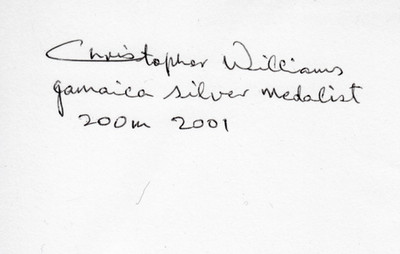 Christopher Williams
Jamaica silver medalist
200m 2001